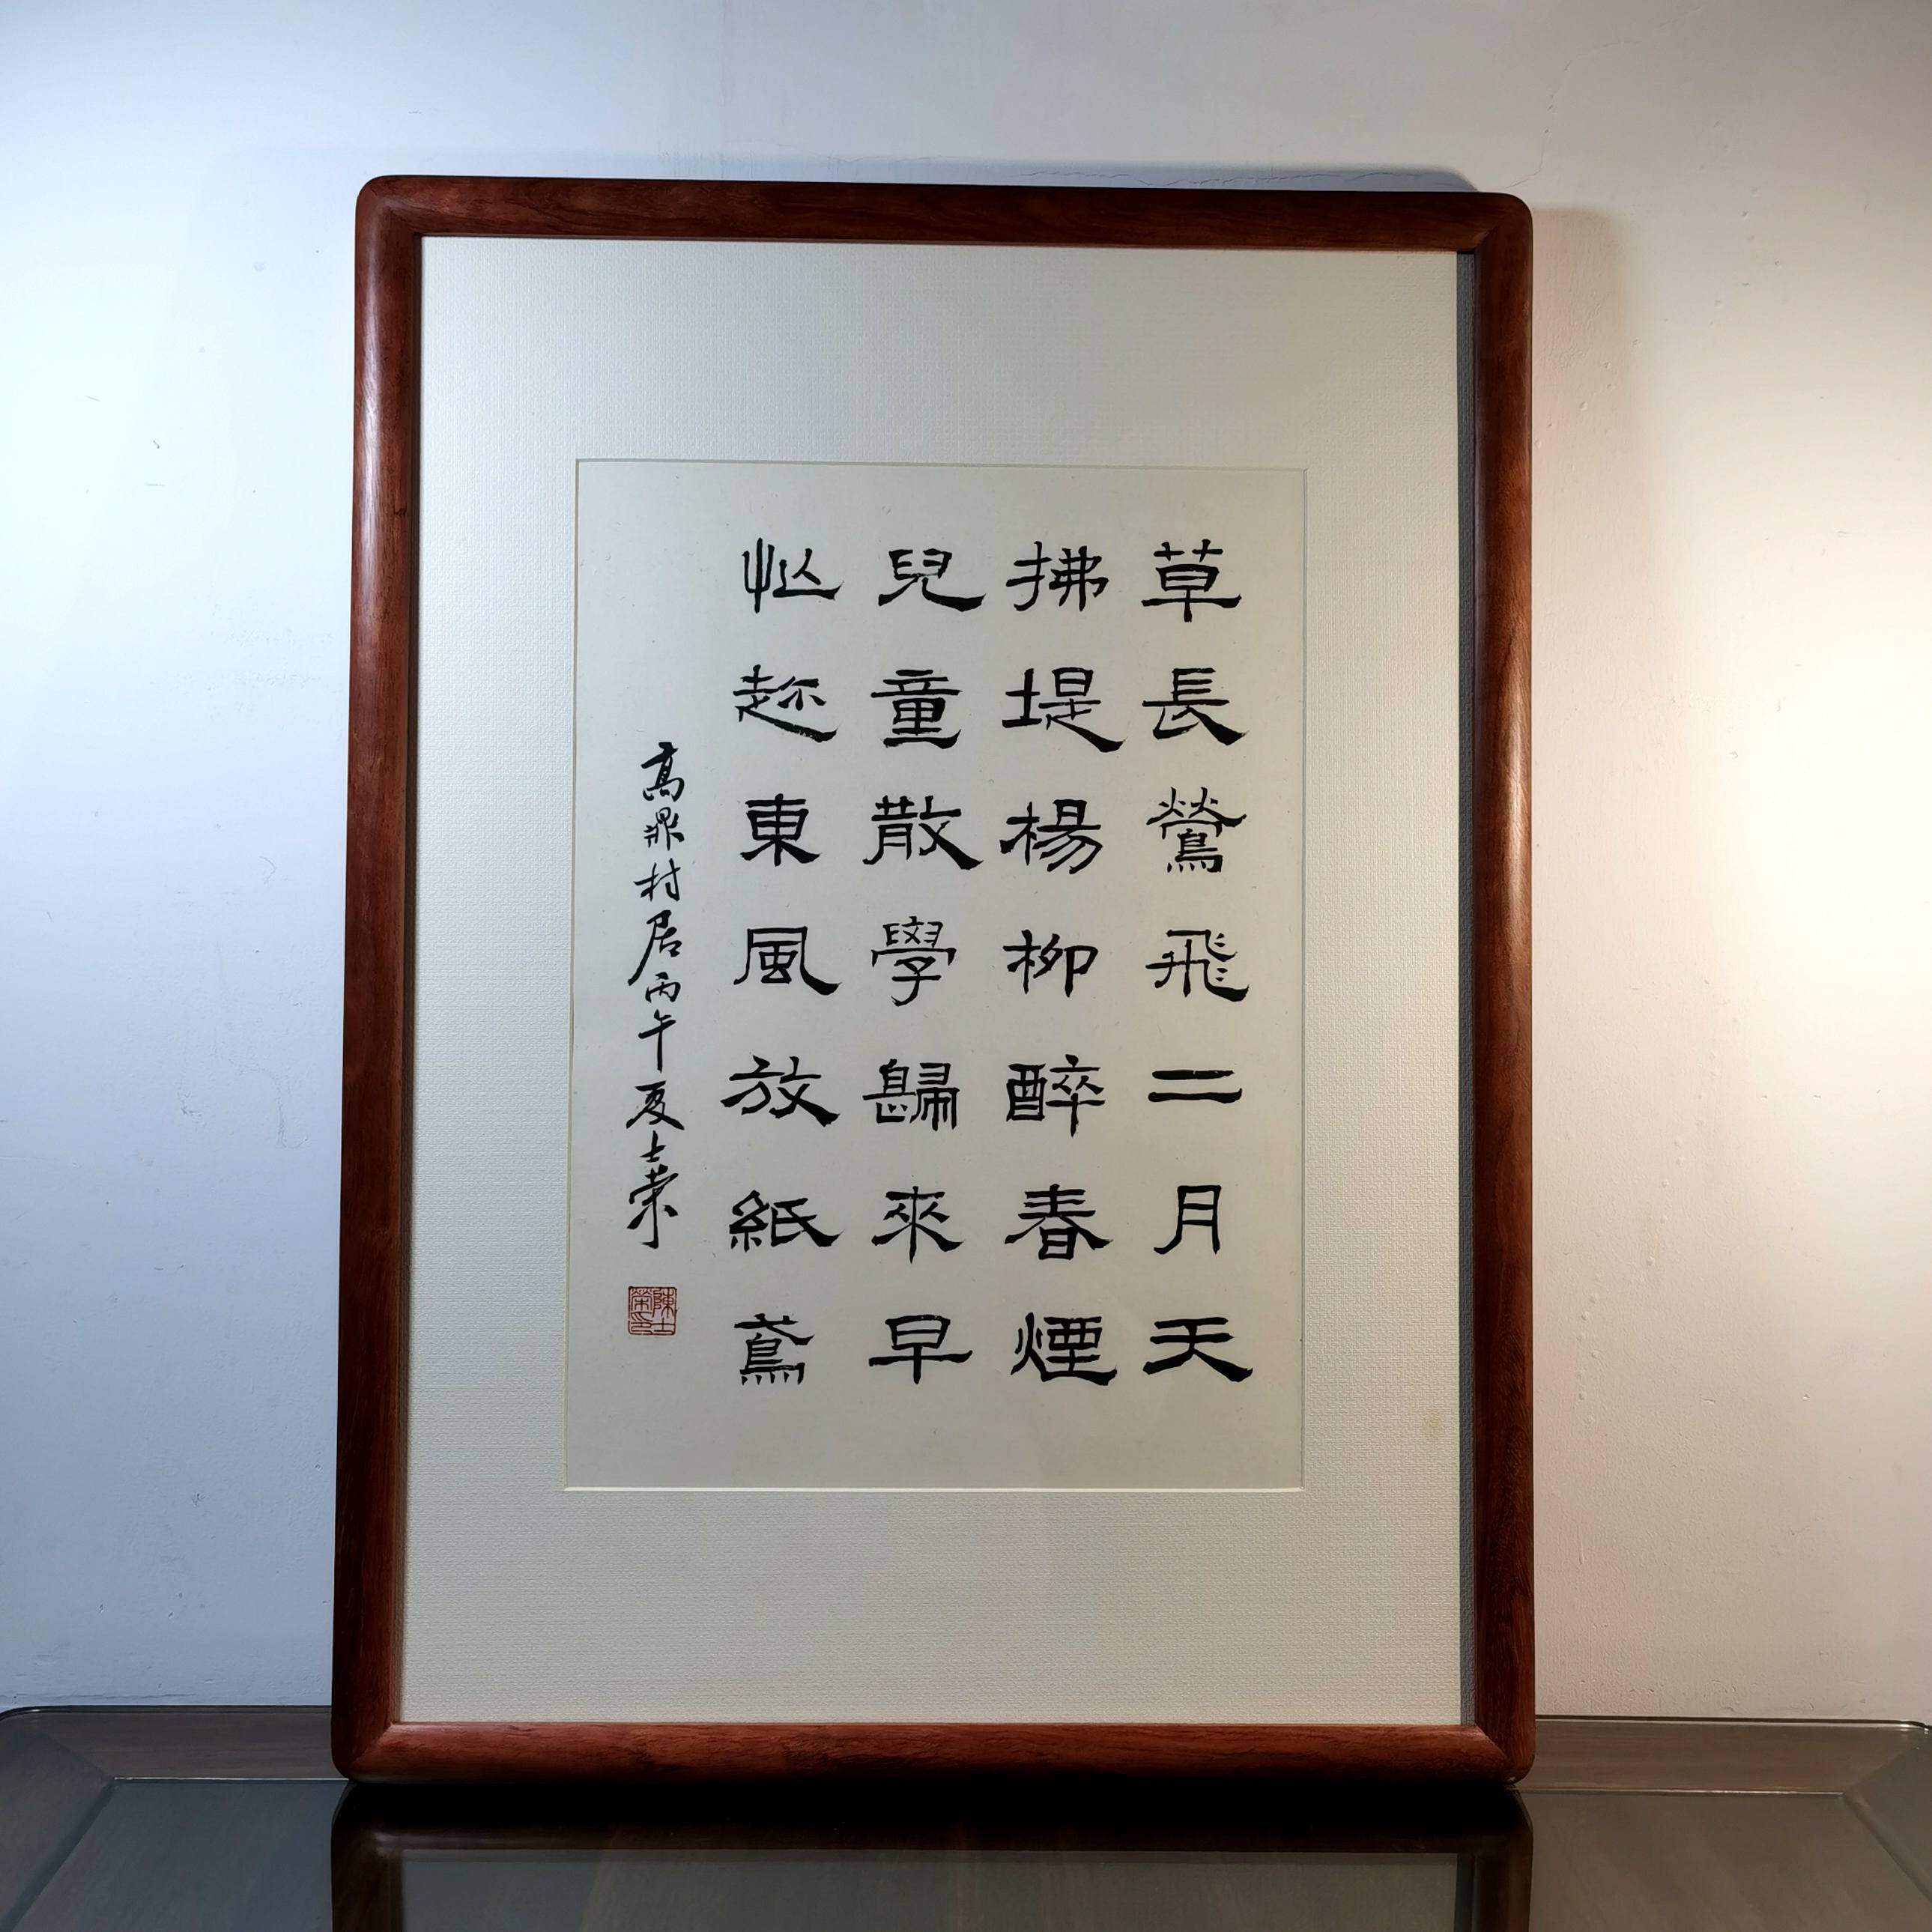 草長鶯飛二月天
拂堤楊柳醉春煙
兒童散學歸來早
忙趂東風放紙鳶
高鼎村居丙午夏士榮
陳士榮印